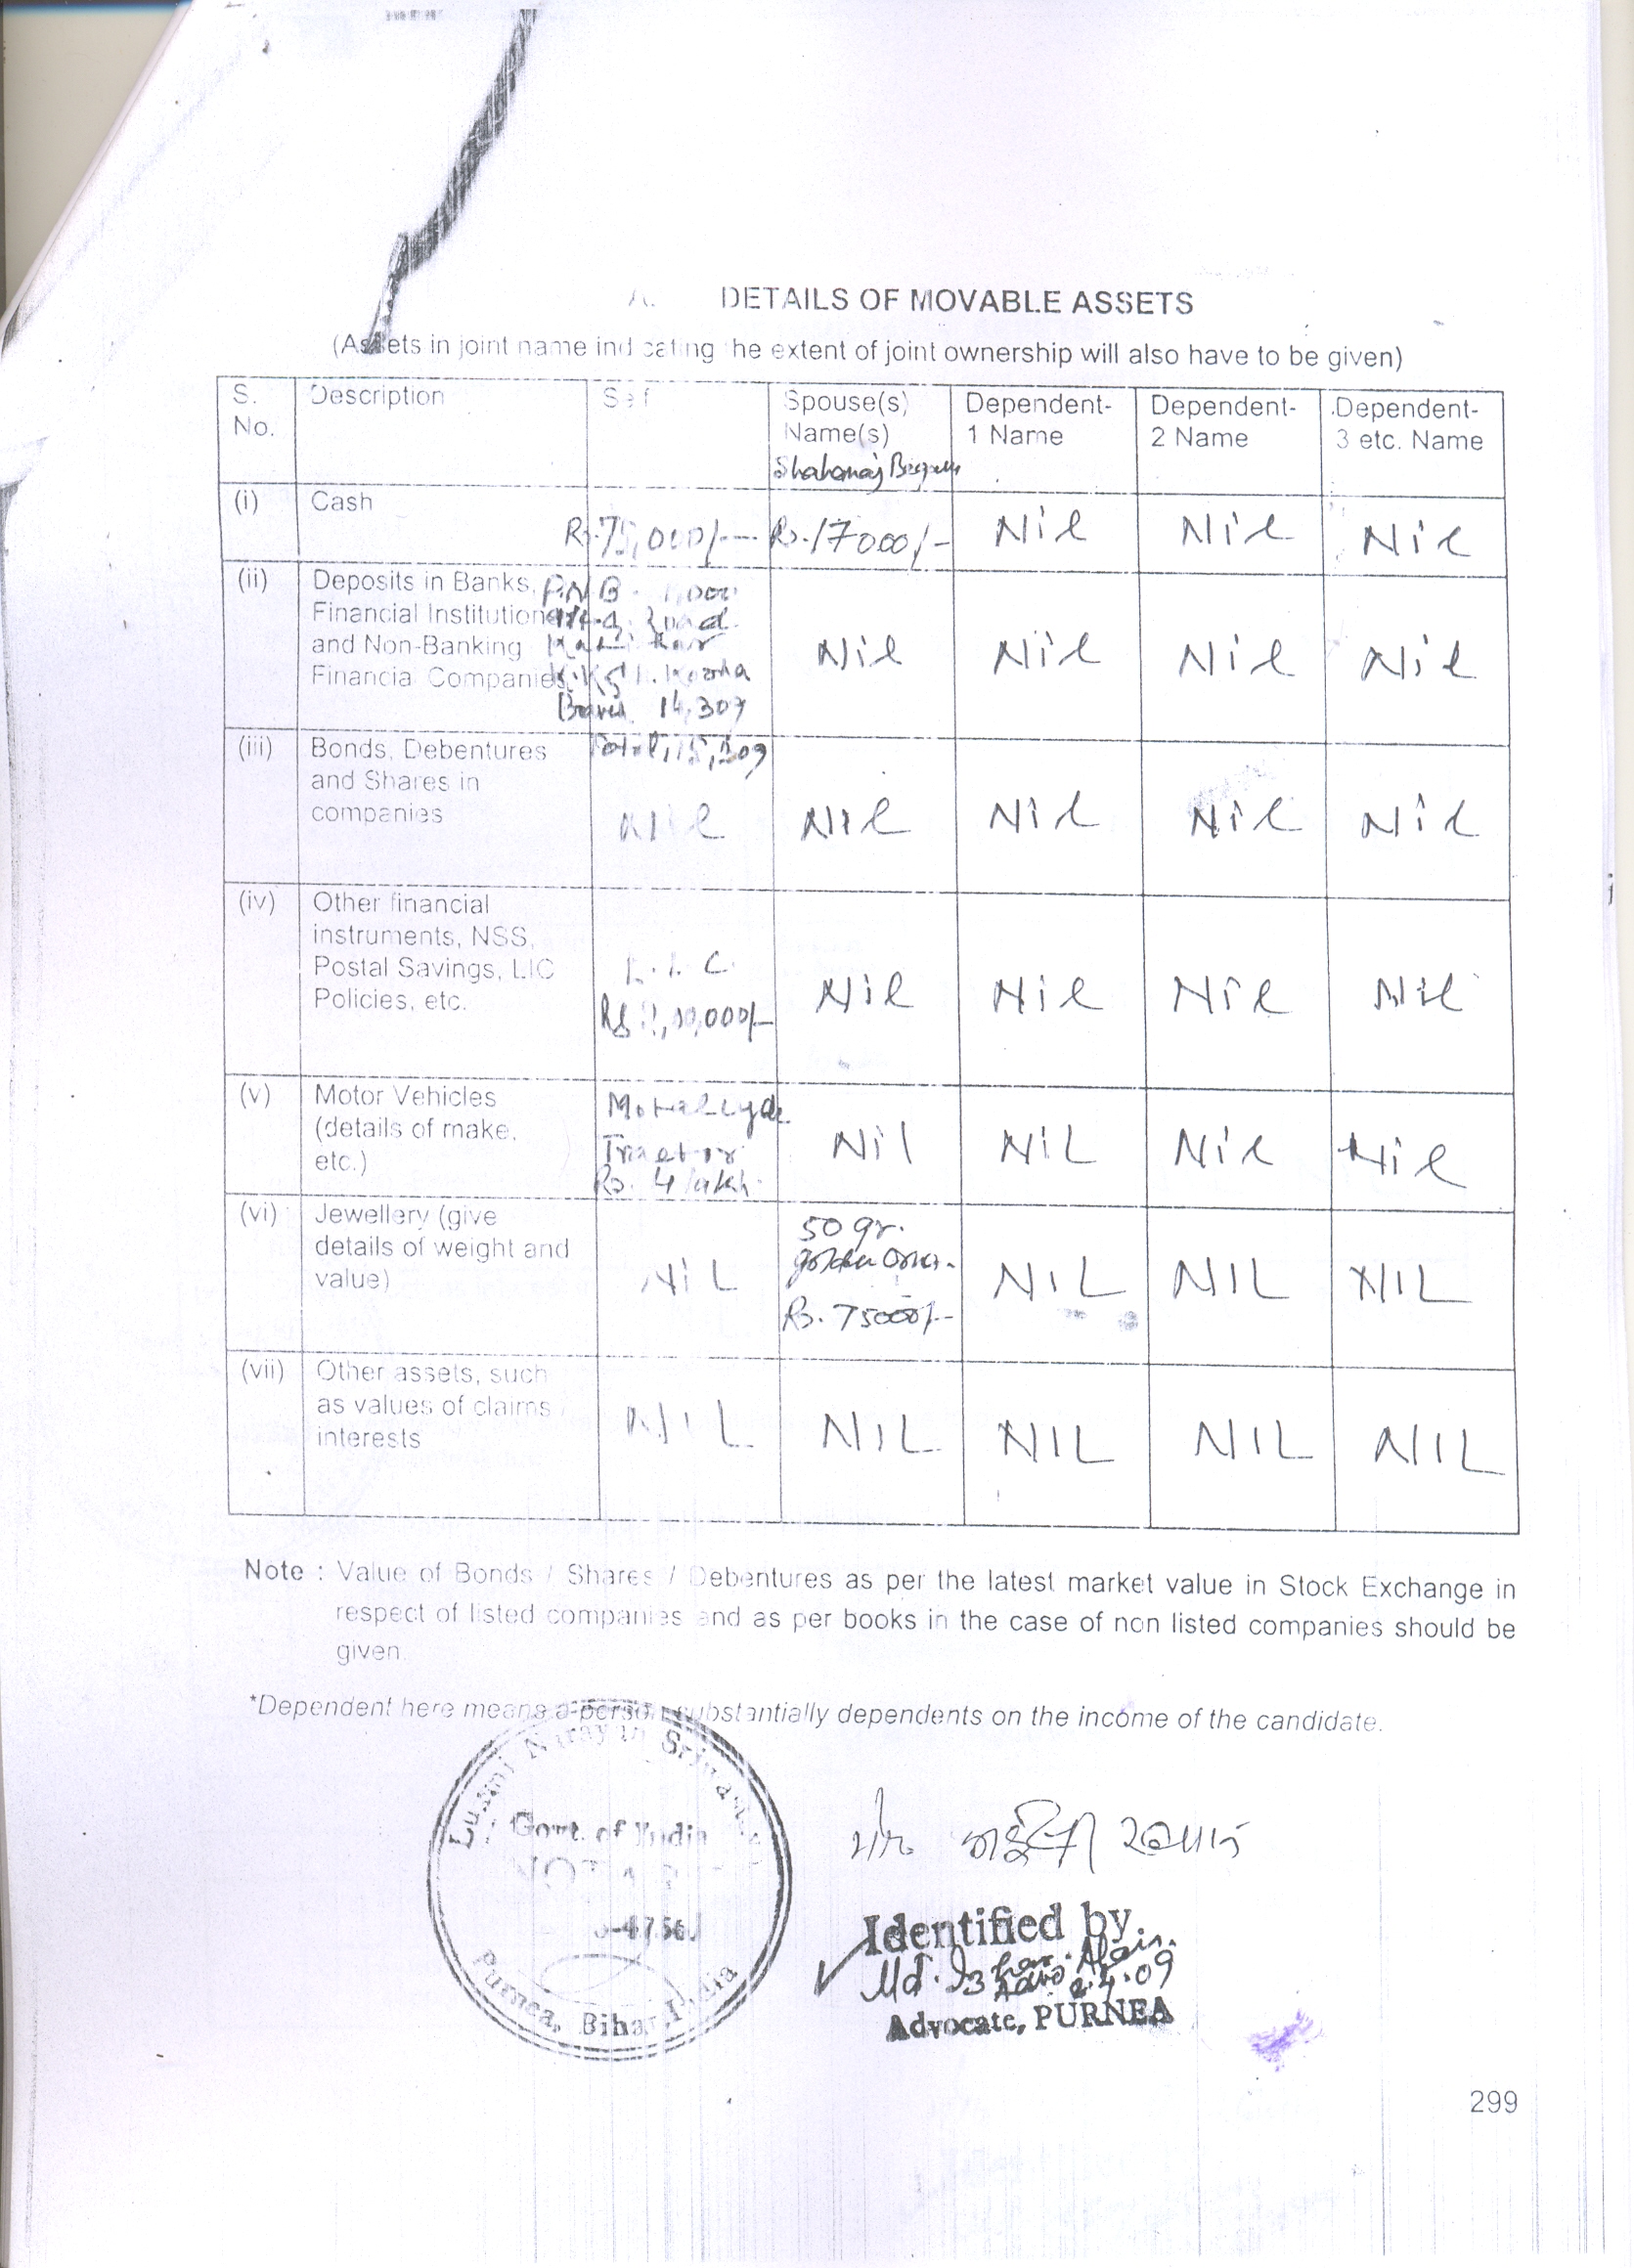 DETAILS OF MOVABLE ASSETS
(Assets in joint name indicating the extent of joint ownership will also have to be given)
S. No. Description Self Spouse(s) Name(s) Dependent-1 Name Dependent-2 Name Dependent-3 etc. Name
(i) Cash Rs. 75,000/- Rs. 17000/- Nil Nil Nil
(ii) Deposits in Banks,
Financial Institution
and Non-Banking
Financial Companies
P.N.B.
14,309
Nil Nil Nil Nil
Total, 15,309
(iii) Bonds, Debentures
and Shares in
companies
Nil Nil Nil Nil Nil
(iv) Other financial
instruments, NSS,
Postal Savings, LIC
Policies, etc.
L.I.C.
Nil Nil Nil Nil
(v) Motor Vehicles
(details of make,
etc.)
Tractor
Rs. 4 lakh.
Nil NiL Nil Nil
(vi) Jewellery (give
details of weight and
value)
NiL
50 gr.
Rs. 75000/-
NIL NIL NIL
(vii) Other assets, such
as values of claims /
interests
NIL NIL NIL NIL NIL
Note : Value of Bonds / Shares / Debentures as per the latest market value in Stock Exchange in
respect of listed companies and as per books in the case of non listed companies should be
given.
*Dependent here means a person substantially dependents on the income of the candidate.
Govt. of India
NOTARY
Purnea, Bihar, India
Identified by.
2.4.09
Advocate, PURNEA
299